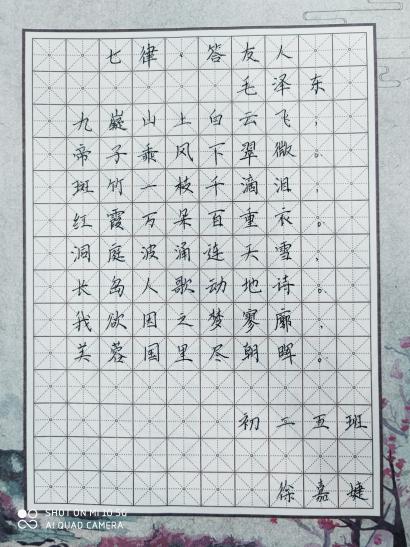 七律·答友人
毛泽东
九嶷山上白云飞，
帝子乘风下翠微。
斑竹一枝千滴泪，
红霞万朵百重衣。
洞庭波涌连天雪，
长岛人歌动地诗。
我欲因之梦寥廓，
芙蓉国里尽朝晖。
初二五班
徐嘉婕
SHOT ON MI 10 5G
AI QUAD CAMERA